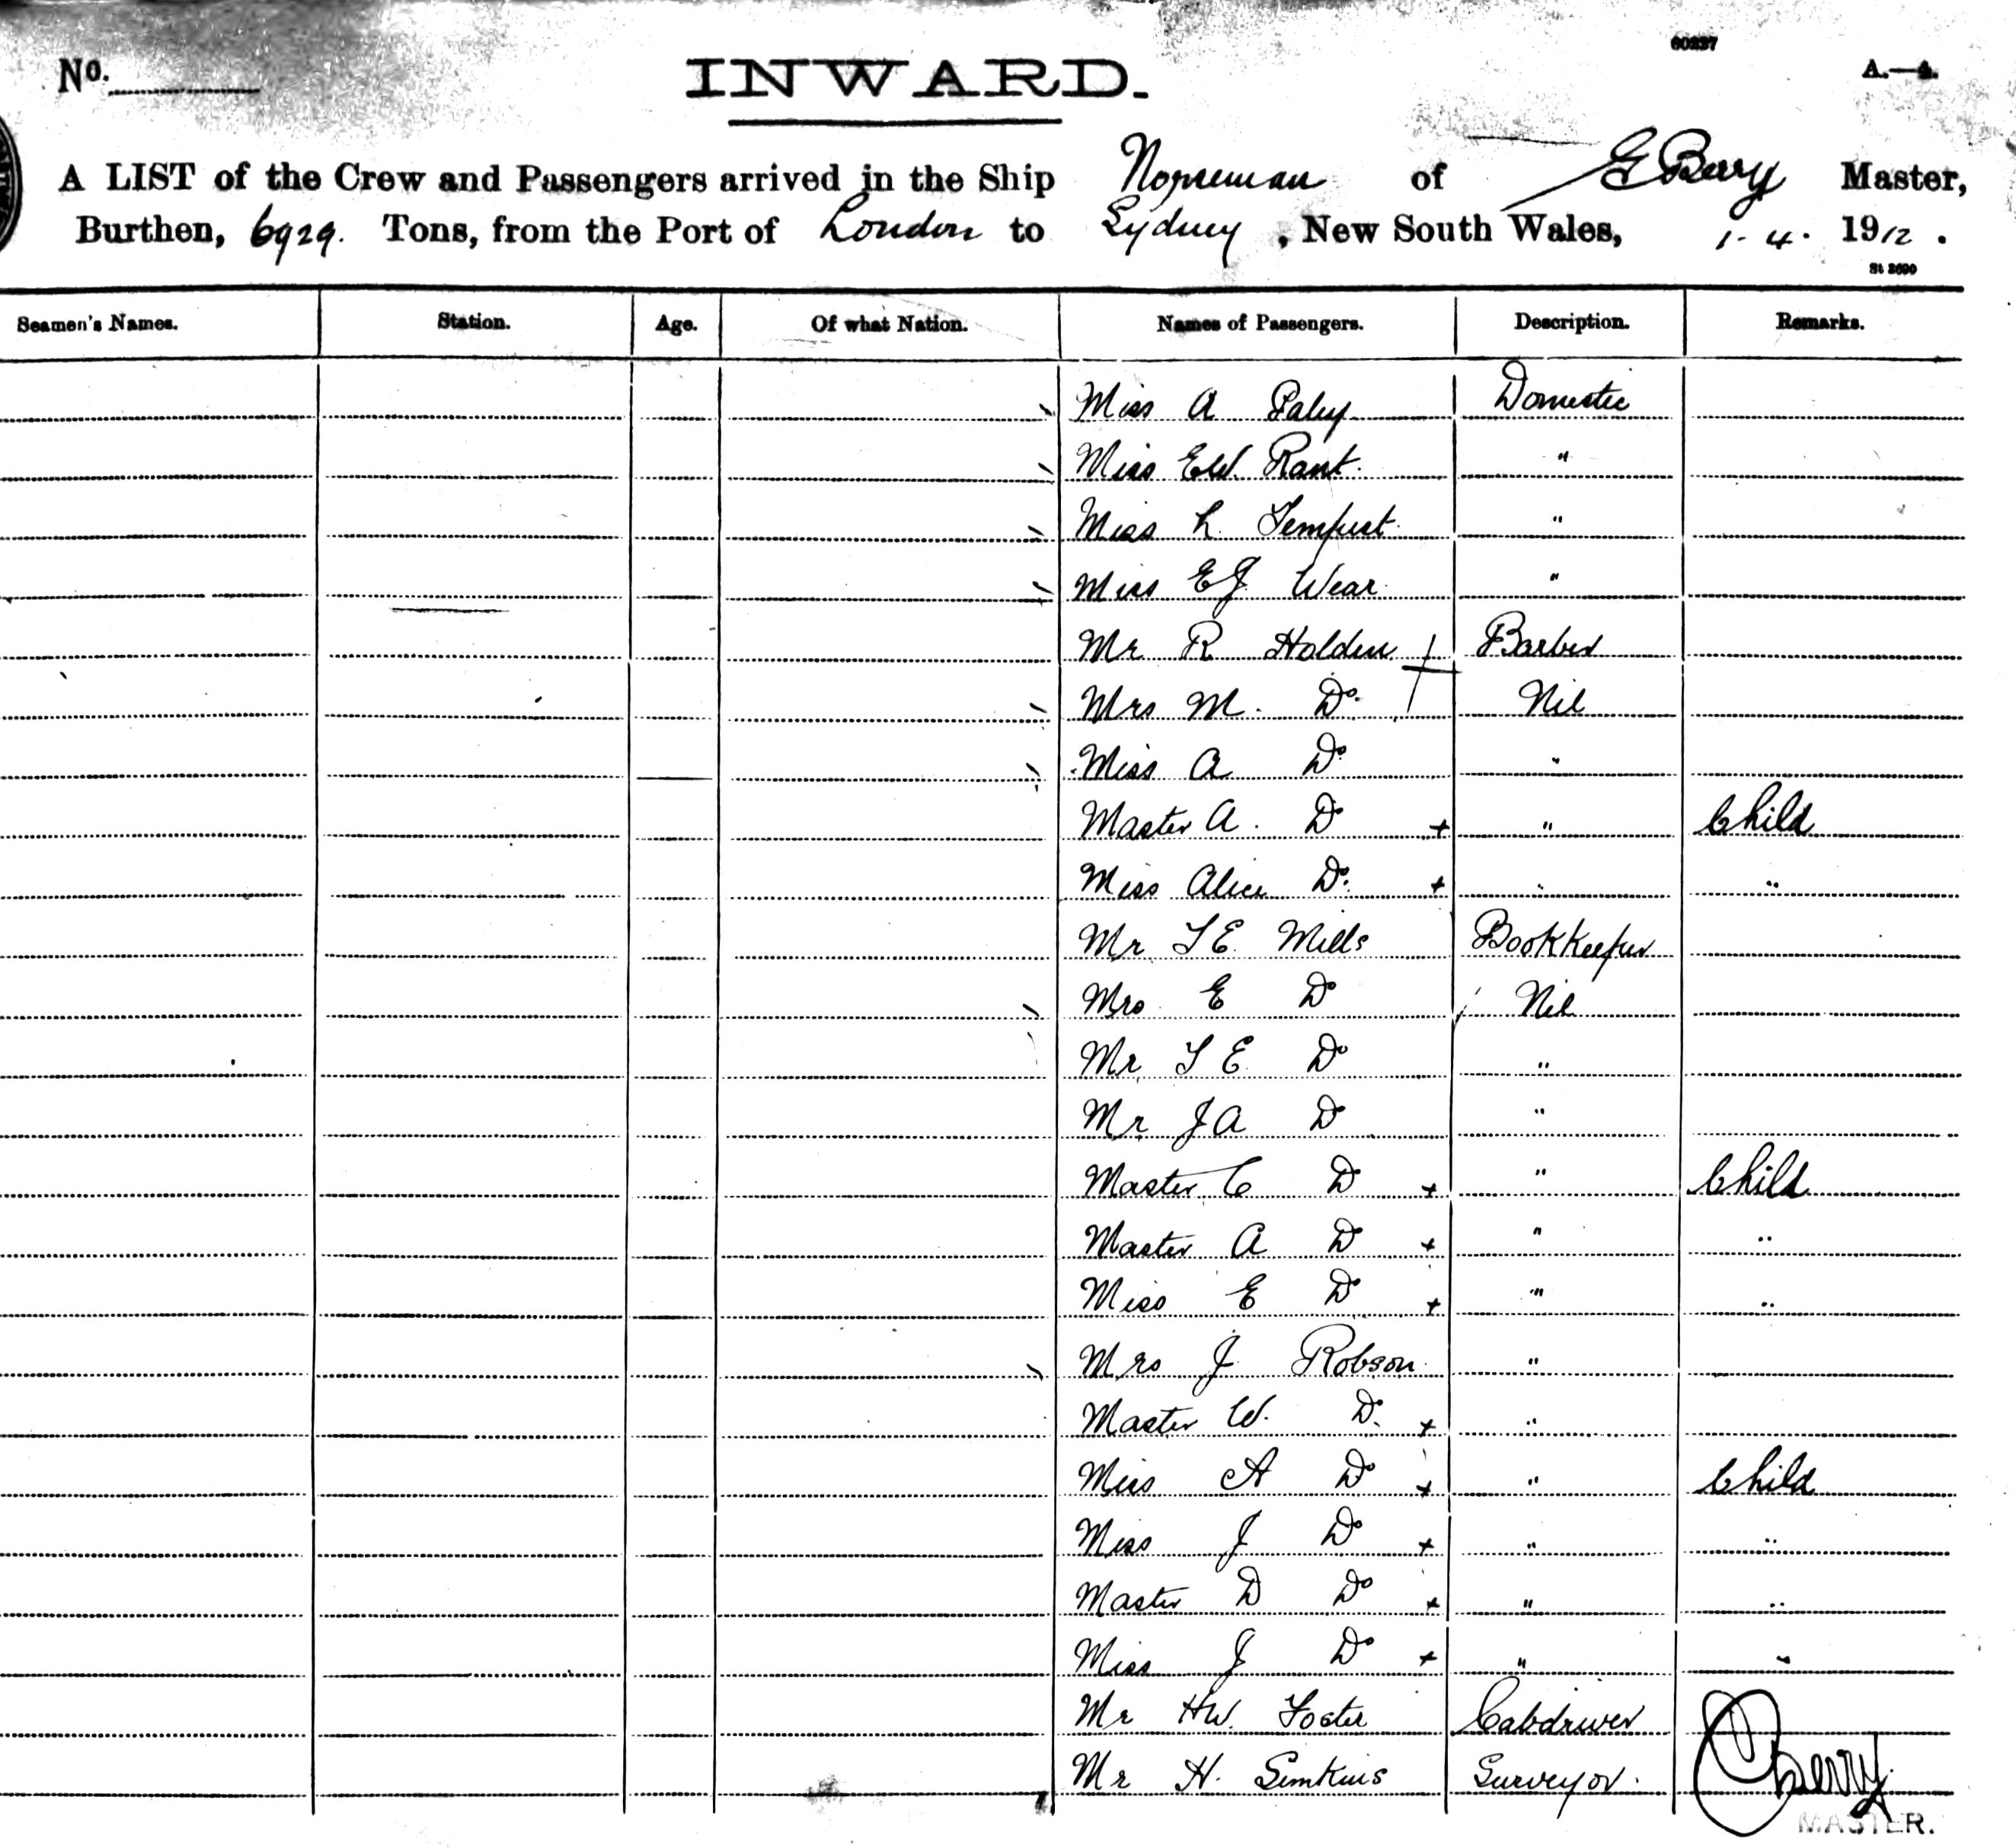 No.
INWARD.
60237
A.—4.
A LIST of the Crew and Passengers arrived in the Ship Norseman of E Berry Master,
Burthen, 6929. Tons, from the Port of London to Sydney, New South Wales, 1-4. 1912.
St 3690
Seamen's Names. Station. Age. Of what Nation. Names of Passengers. Description. Remarks.
Miss A Paley Domestic
Miss EW. Rant. "
Miss L Tempest "
Miss EJ Wear "
Mr R Holden + Barber
Mrs M. Do. Nil
Miss A Do "
Master A. Do + " Child
Miss Alice Do. + " "
Mr T E Mills Bookkeeper
Mrs E Do Nil
Mr T E Do "
Mr J A Do "
Master C Do + " Child
Master A Do + " "
Miss E Do + " "
Mrs J Robson "
Master W. Do. + "
Miss A Do + " Child
Miss J Do + " "
Master D Do + " "
Miss J Do + " "
Mr HW. Foster Cabdriver
Mr H. Simkins Surveyor.
Berry
MASTER.